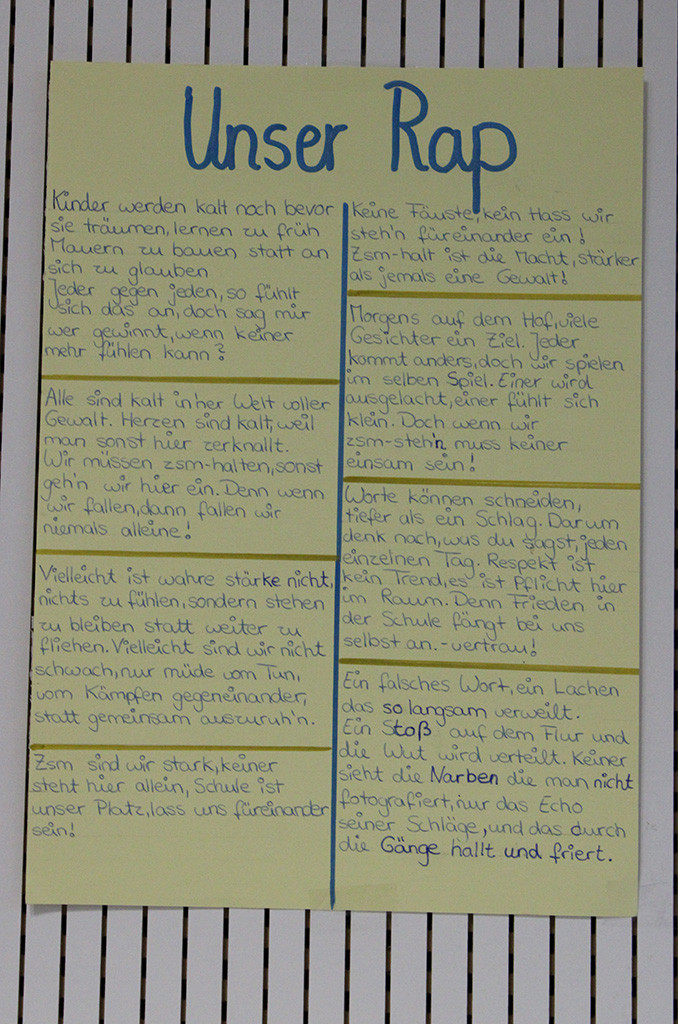 Unser Rap
Kinder werden kalt noch bevor
sie träumen, lernen zu früh
Mauern zu bauen statt an
sich zu glauben
Jeder gegen jeden, so fühlt
sich das an, doch sag mir
wer gewinnt, wenn keiner
mehr fühlen kann?
Alle sind kalt in her Welt voller
Gewalt. Herzen sind kalt, weil
man sonst hier zerknallt.
Wir müssen zsm-halten, sonst
geh'n wir hier ein. Denn wenn
wir fallen, dann fallen wir
niemals alleine!
Vielleicht ist wahre stärke nicht,
nichts zu fühlen, sondern stehen
zu bleiben statt weiter zu
fliehen. Vielleicht sind wir nicht
schwach, nur müde vom Tun,
vom Kämpfen gegeneinander,
statt gemeinsam auszuruh'n.
Zsm sind wir stark, keiner
steht hier allein, Schule ist
unser Platz, lass uns füreinander
sein!
Keine Fäuste, kein Hass wir
steh'n füreinander ein!
Zsm-halt ist die Macht, stärker
als jemals eine Gewalt!
Morgens auf dem Hof, viele
Gesichter ein Ziel. Jeder
kommt anders, doch wir spielen
im selben Spiel. Einer wird
ausgelacht, einer fühlt sich
klein. Doch wenn wir
zsm-steh'n muss keiner
einsam sein!
Worte können schneiden,
tiefer als ein Schlag. Darum
denk nach, was du sagst, jeden
einzelnen Tag. Respekt ist
kein Trend, es ist Pflicht hier
im Raum. Denn Frieden in
der Schule fängt bei uns
selbst an. - vertrau!
Ein falsches Wort, ein Lachen
das so langsam verweilt.
Ein Stoß auf dem Flur und
die Wut wird verteilt. Keiner
sieht die Narben die man nicht
fotografiert, nur das Echo
seiner Schläge, und das durch
die Gänge hallt und friert.